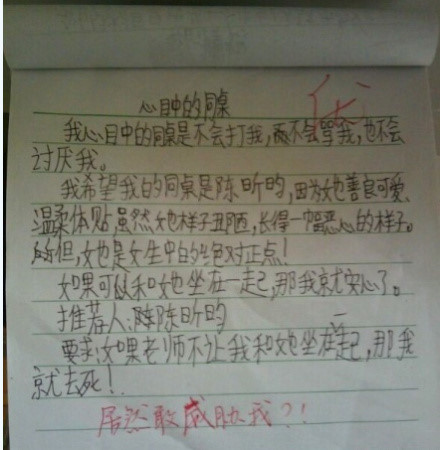 心目中的同桌
我心目中的同桌是不会打我,而不会骂我,也不会
讨厌我。
我希望我的同桌是陈昕昀,因为她善良可爱、
温柔体贴,虽然她样子丑陋,长得一幅恶心的样子。
但,她也是女生中的绝对正点!
如果可以和她坐在一起,那我就安心了。
推荐人:陈昕昀
要求:如果老师不让我和她坐在一起,那我
就去死!
居然敢威胁我?!